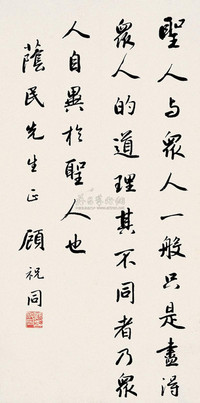 聖人与衆人一般只是盡得
衆人的道理其不同者乃衆
人自異於聖人也
蔭民先生正 顧祝同